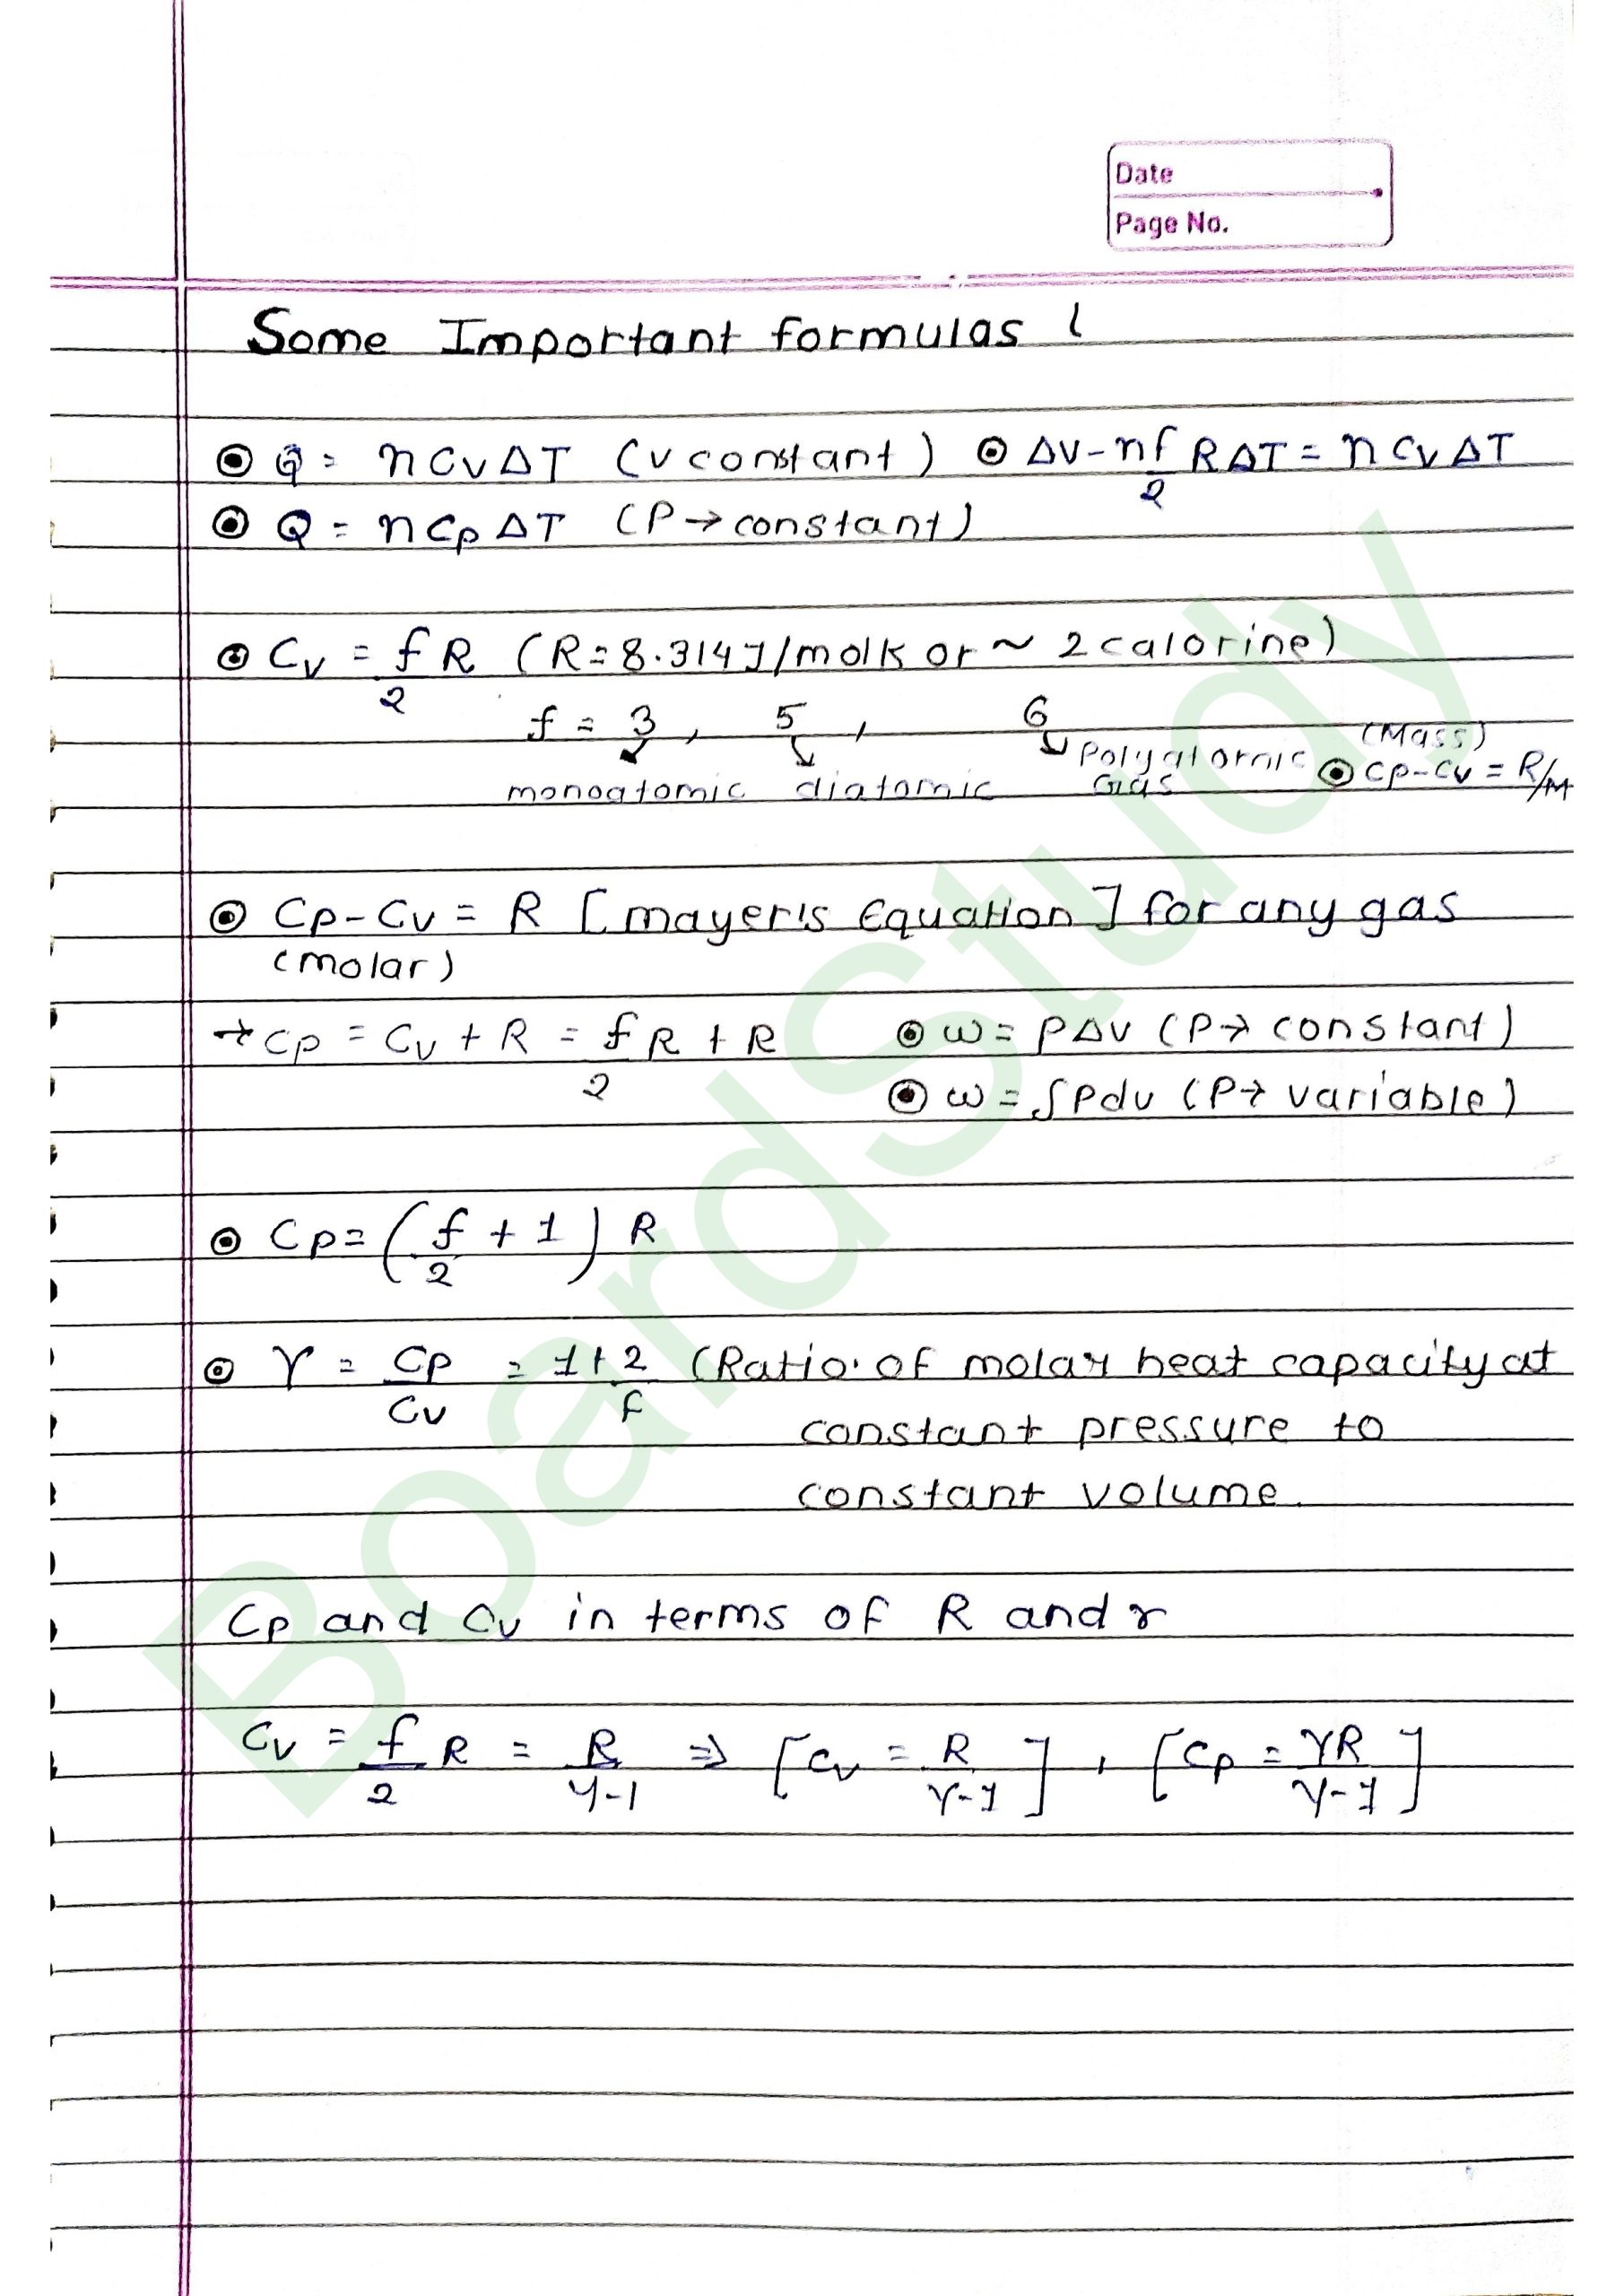 Date
Page No.
Some Important formulas (
⊙ Q = nCvΔT (v constant) ⊙ ΔV - nf/2 RΔT = nCvΔT
⊙ Q = nCpΔT (P → constant)
⊙ Cv = f/2 R (R = 8.314J/molK or ~ 2 calorine)
f = 3, 5, 6
monoatomic diatomic Polyatomic Gas
(Mass)
⊙ Cp-Cv = R/M
⊙ Cp-Cv = R [mayer's Equation] for any gas
(molar)
→ Cp = Cv + R = f/2 R + R ⊙ ω = PΔV (P → constant)
⊙ ω = ∫Pdv (P → variable)
⊙ Cp = (f/2 + 1) R
⊙ γ = Cp/Cv = 1 + 2/f (Ratio of molar heat capacity at
constant pressure to
constant volume.
Cp and Cv in terms of R and γ
Cv = f/2 R = R/γ-1 ⇒ [Cv = R/γ-1], [Cp = γR/γ-1]
BoardStudy